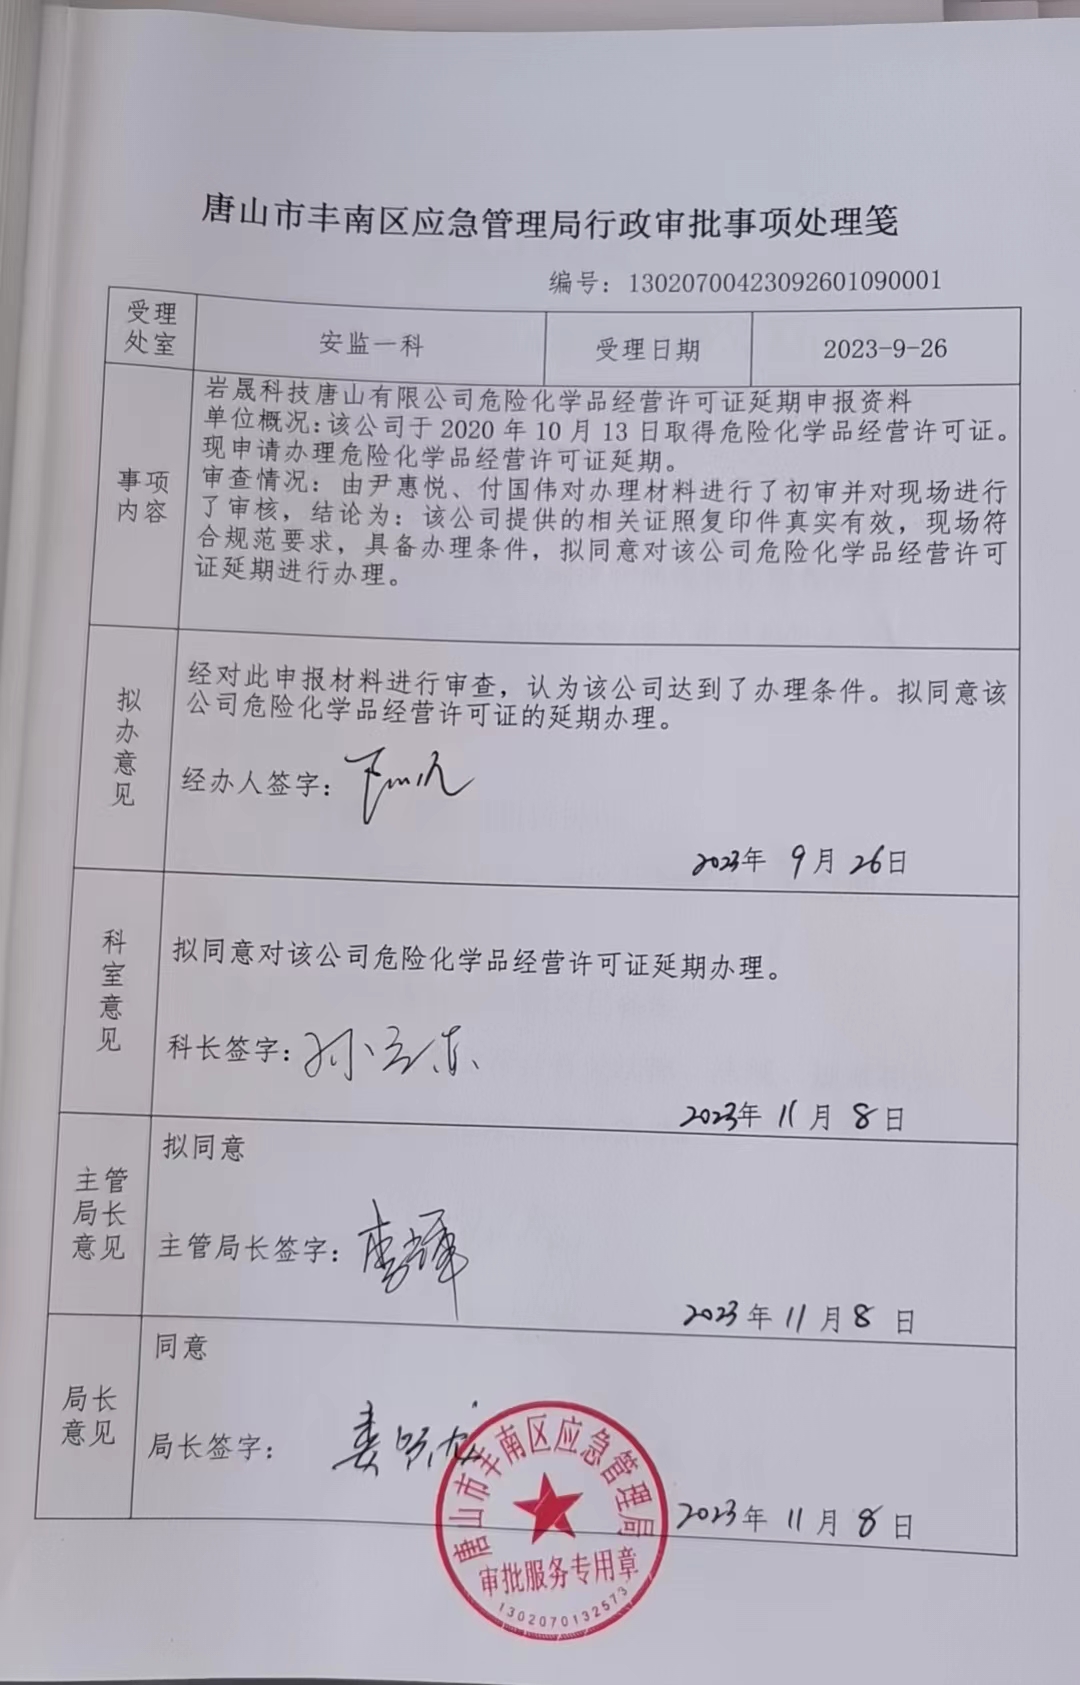 唐山市丰南区应急管理局行政审批事项处理笺
编号：13020700423092601090001
受理
处室
安监一科
受理日期
2023-9-26
事项
内容
岩晟科技唐山有限公司危险化学品经营许可证延期申报资料
单位概况:该公司于 2020 年 10 月 13 日取得危险化学品经营许可证。
现申请办理危险化学品经营许可证延期。
审查情况：由尹惠悦、付国伟对办理材料进行了初审并对现场进行
了审核，结论为：该公司提供的相关证照复印件真实有效，现场符
合规范要求，具备办理条件，拟同意对该公司危险化学品经营许可
证延期进行办理。
拟
办
意
见
经对此申报材料进行审查，认为该公司达到了办理条件。拟同意该
公司危险化学品经营许可证的延期办理。
经办人签字：
2023年 9月 26日
科
室
意
见
拟同意对该公司危险化学品经营许可证延期办理。
科长签字：孙立东
2023年 11月 8日
主管
局长
意见
拟同意
主管局长签字：
2023年 11月 8日
局长
意见
同意
局长签字：
2023年 11月 8日
唐山市丰南区应急管理局
审批服务专用章
1302070132573